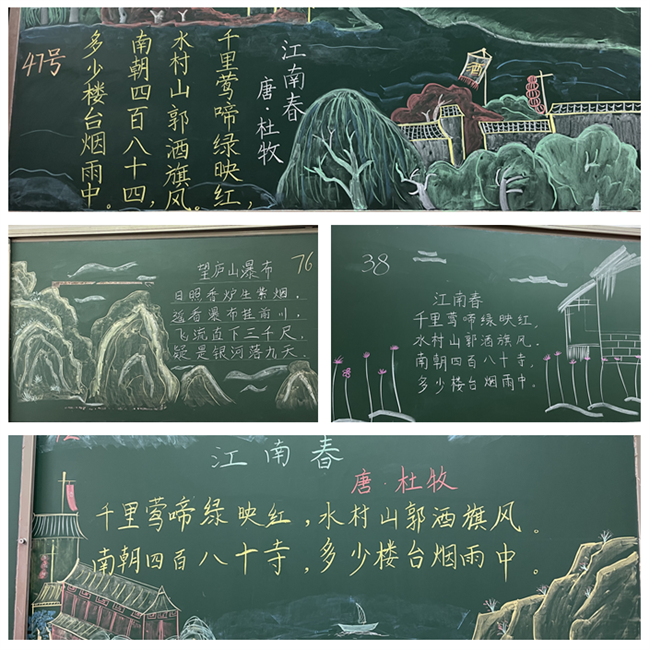 47号
江南春
唐·杜牧
千里莺啼绿映红，
水村山郭酒旗风。
南朝四百八十四，
多少楼台烟雨中。
酒
76
望庐山瀑布
日照香炉生紫烟，
遥看瀑布挂前川，
飞流直下三千尺，
疑是银河落九天。
38
江南春
千里莺啼绿映红，
水村山郭酒旗风．
南朝四百八十寺，
多少楼台烟雨中。
江南春
唐·杜牧
千里莺啼绿映红，水村山郭酒旗风。
南朝四百八十寺，多少楼台烟雨中。